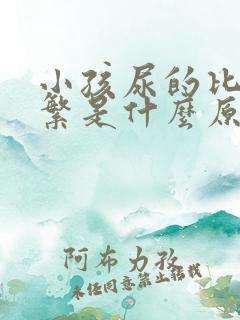 小孩尿的比
繁是什麼原
阿布力孜
未经同意禁止搭载